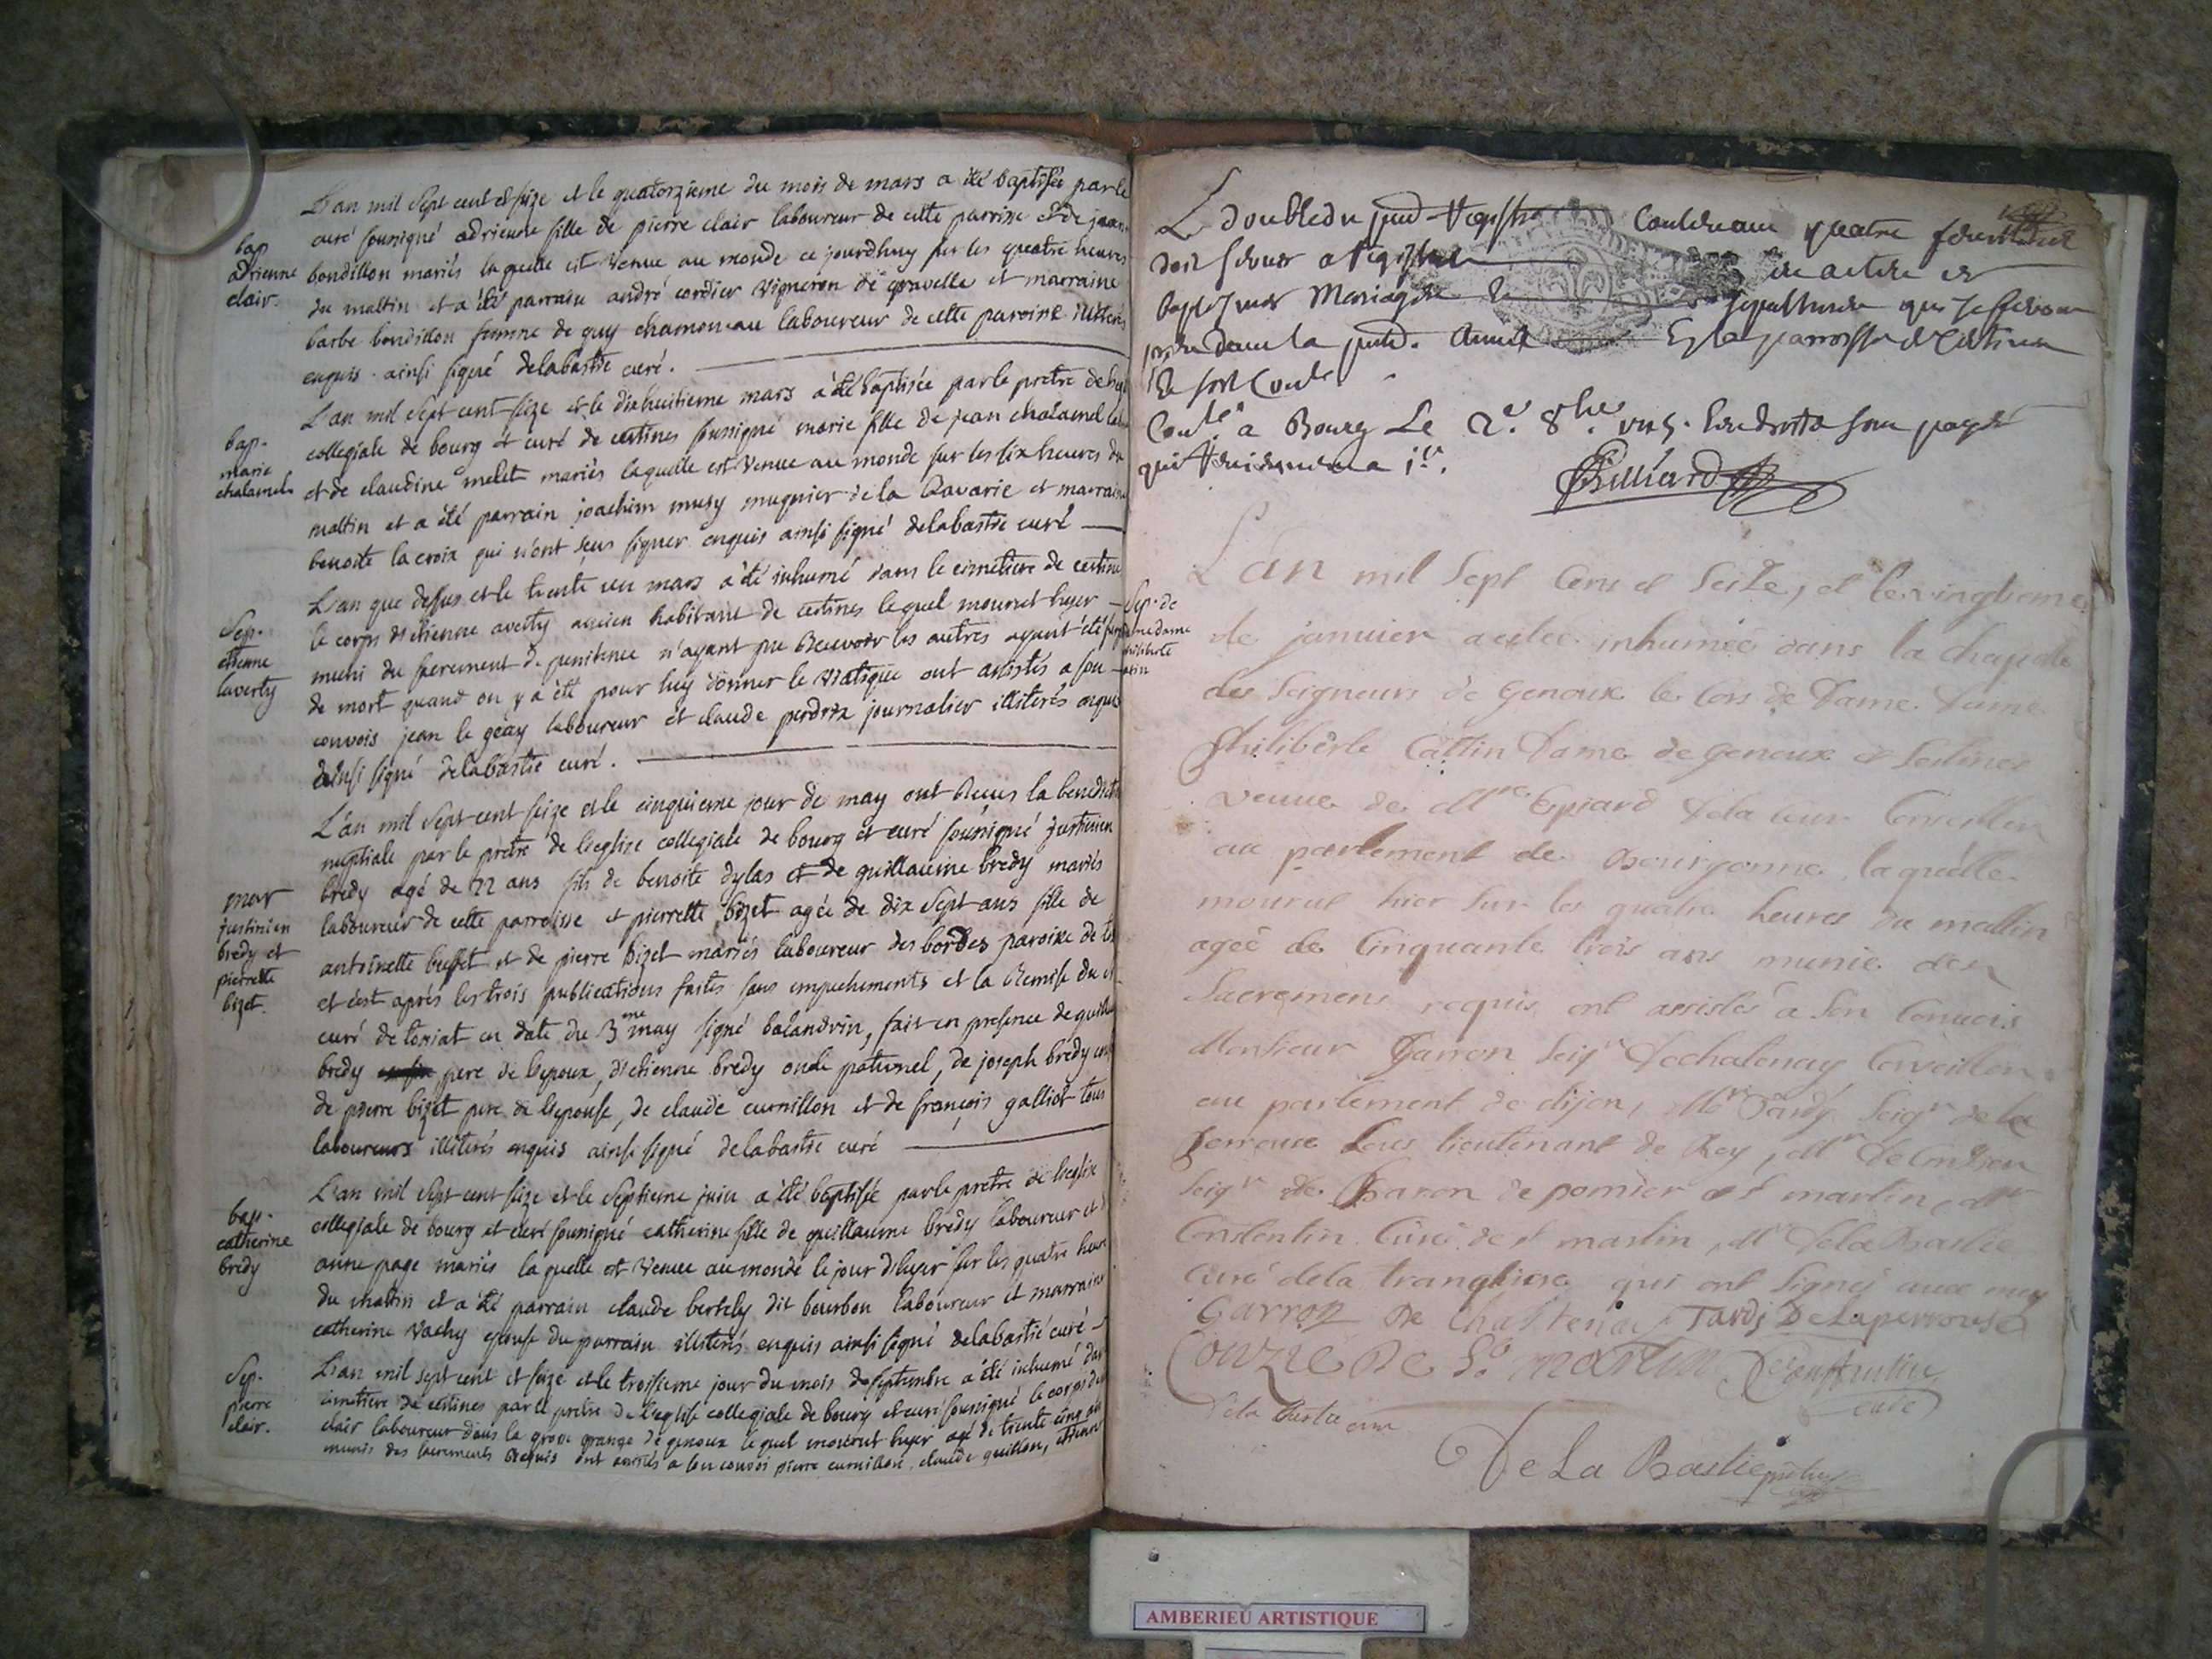 L'an mil sept cent et seize et le quatorzieme du mois de mars a été baptisée par le
curé soussigné adrienne fille de pierre clair laboureur de cette parroisse et de jeanne
bap
adrienne
clair.
bondillon mariés laquelle est venue au monde ce jourdhuy sur les quatre heures
du mattin et a été parrain andré cordier vigneron de gravelle et marraine
barbe bondillon femme de guy chamoneau laboureur de cette paroisse illiterés
enquis . ainsi signé delabastie curé .
L'an mil sept cent seize et le dixhuitieme mars a été baptisée par le pretre de
bap.
marie
chalamel
collegiale de bourg et curé de certines soussigné marie fille de jean chalamel
et de claudine melet mariés laquelle est venue au monde sur les six heures du
mattin et a été parrain joachim musy mugnier de la Ravarie et marraine
benoite la croix qui n'ont sçeu signer enquis ainsi signé delabastie curé
L'an que dessus et le trente un mars a été inhumé dans le cimetiere de certines
Sep.
etienne
laverty
le corps d'etienne averty ancien habitant de certines lequel mourut hyer
muni du sacrement de penitence n'ayant pu recevoir les autres ayant été
de mort quand on y a été pour luy donner le viatique ont assistés a son
convois jean le geay laboureur et claude perdrix journalier illiterés enquis
ainsi signé delabastie curé .
L'an mil sept cent seize et le cinquieme jour de may ont reçus la benediction
nuptiale par le pretre de l'eglise collegiale de bourg et curé soussigné justinien
mar
justinien
bredy et
pierrette
bizet.
bredy agé de 22 ans fils de benoite dylas et de guillaume bredy mariés
laboureur de cette parroisse et pierrette bizet agée de dix sept ans fille de
antoinette buffet et de pierre bizet mariés laboureur des bordes paroisse de
et c'est aprés les trois publications faites sans empechements et la remise du
curé de tossiat en date du 3me may signé balandrin, fait en presence de
bredy pere de l'epoux, d'etienne bredy oncle paternel, de joseph bredy
de pierre bizet pere de l'epouse, de claude curnillon et de françois galliot tous
laboureurs illiterés enquis ainsi signé delabastie curé
L'an mil sept cent seize et le septieme juin a été baptisée par le pretre de l'eglise
bap.
catherine
bredy
collegiale de bourg et curé soussigné catherine fille de guillaume bredy laboureur et
anne page mariés laquelle est venue au monde le jour d'hyer sur les quatre heures
du mattin et a été parrain claude bertely dit bourbon laboureur et marraine
catherine vachy epouse du parrain illiterés enquis ainsi signé delabastie curé
Sep.
pierre
clair.
L'an mil sept cent et seize et le troisieme jour du mois de septembre a été inhumé dans
cimetiere de certines par le pretre de l'eglise collegiale de bourg et curé soussigné le corps de
clair laboureur dans la grosse grange de genoux lequel mourut hyer agé de trente cinq ans
munis des sacrements requis ont assistés a son convoi pierre curnillon, claude guillon, etienne
Le double du
Contenant quatre feuillets
doit servir a registrer
les actes de
baptesmes Mariages et
sepultures qui se feront
Bourg Le 2e 8bre
Billiard
L'an mil Sept Cens et Seize, et le vingtieme
Sep. de
madame
philiberte
catin
de janvier a estée inhumée dans la chapele
des Seigneurs de Genoux le Cors de Dame Dame
Philiberte Cattin Dame de Genoux et Sertines
veuve de Mre Epiard Dela Cour Conseiller
au parlement de Bourgonne, laquelle
mourut hier Sur les quatre heures du mattin
ageé de Cinquante trois ans munie des
Sacremens requis ont assistés a Son Convois
Monsieur Garron Seigr Dechatenay Conseillier
au parlement de dijon, Mr Tardy Seigr de la
perrouse Sous lieutenant de Roy, Mr
Seigr et Baron de pomier et St martin, Mr
Constentin Curé de st martin, Mr Dela Bastie
Curé dela trangliere qui ont Signés avec moy
Garron De Chastenai Tardy De Laperrouse
de St. martin Constentin
curé
Dela Bastie curé
De La Bastie
AMBERIEU ARTISTIQUE